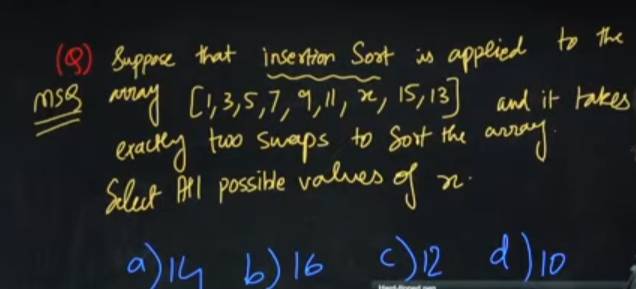 (Q) Suppose that insertion Sort is applied to the
MSQ array [1,3,5,7,9,11, x, 15,13] and it takes
exactly two swaps to Sort the array.
Select All possible values of x.
a) 14 b) 16 c) 12 d) 10